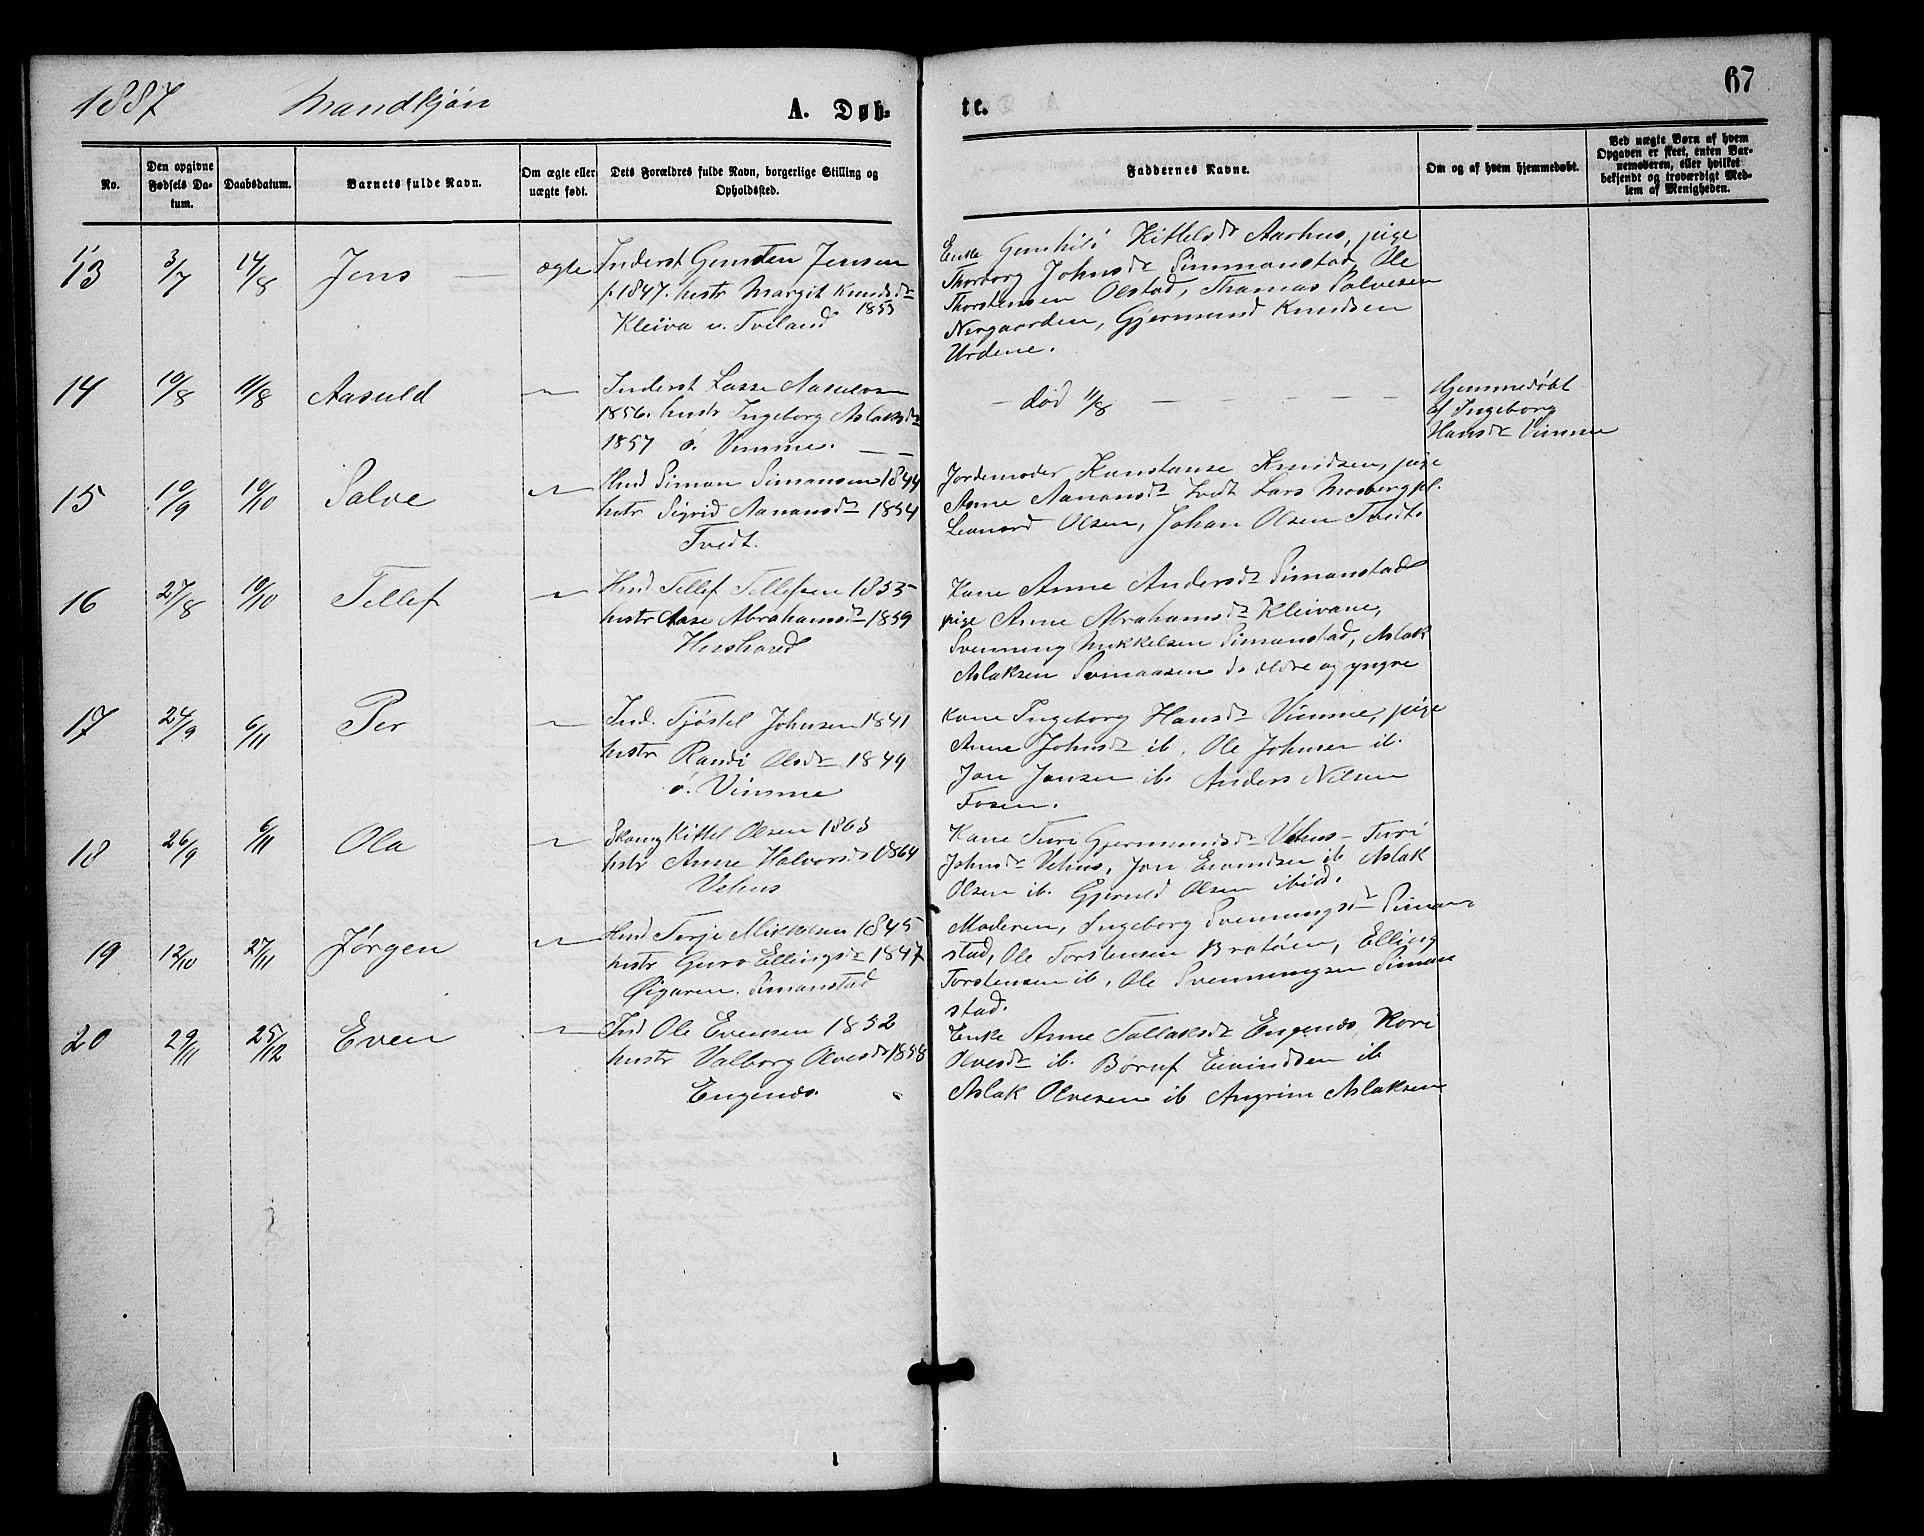 1887 Mandkjøn A. Døb-
te. 67
No. Den opgivne Fødsels Da-tum. Daabsdatum. Barnets fulde Navn. Om ægte eller uægte født. Dets Forældres fulde Navn, borgerlige Stilling og Opholdssted.
Faddernes Navne. Om og af hvem hjemmedøbt. Ved uægte Børn af hvem Opgaven er skeet, enten Bar-nemoderen, eller hvilket bekjendt og troværdigt Med-lem af Menigheden.
13 3/7 14/8 Jens ægte Inderst Gunsten Jensen
f. 1847. hustr Margit Knudsdr
1853
Kleiva u. Tveland
Enke Gunhild Kittelsdr Aarhus, pige
Thorborg Johnsdr Simmonstad, Ole
Thorstensen Olstad, Thomas Salvesen
Nergaarden, Gjermund Knudsen
Urdene.
14 10/8 11/8 Aasuld Inderst Lasse Aasulvsen
1856. hustr Ingeborg Aslaksdr
1857 ö. Vimme.
død 11/8
Hjemmedøbt
af Ingeborg
Hansdr Vimme
15 10/9 10/10 Salve Hmd Simon Simonsen 1844
hstr Sigrid Aanonsdr 1854
Tvedt.
Jordemoder Konstanse Knudsen, pige
Anne Aanonsdr Tvedt Lars Mosberg
Leonard Olsen, Johan Olsen Tvedt
16 27/8 10/10 Tellef Hmd Tellef Tellefsen 1855
hustr Aase Abrahamsdr 1859
Kone Anne Andersdr Simonstad
pige Anne Abrahamsdr Kleivane,
Svenning Mikkelsen Simonstad, Aslak
Aslaksen d. ældre og yngre
17 24/9 6/11 Per Ind. Tjöstel Johnsen 1841
hustr Randi Olsdr 1849
ö. Vimme
Kone Ingeborg Hansdr Vimme, pige
Anne Johnsdr ib. Ole Johnsen ib.
Jon Jonsen ib. Anders Nilsen
Fosen.
18 26/9 6/11 Ola Kittel Olsen 1863
hstr Anne Halvorsd 1864
Vehus
Kone Turi Gjermundsdr Vehus - Turi
Johnsdr Vehus, Jon Evindsen ib. Aslak
Olsen ib. Gjeruld Olsen ibid.
19 12/10 27/11 Jørgen Hmd Terje Mikkelsen 1845
hustr Guro Ellingsdr 1847
Øigaren. Simonstad
Moderen, Ingeborg Svenningsdr Simon-
stad, Ole Torstensen Bratøen, Elling
Torstensen ib, Ole Svenningsen Simon
stad.
20 29/11 25/12 Even Ind Ole Evensen 1852
hustr Valborg Olvesdr 1858
Engenes.
Enke Anne Tallaksdr Engenes, Kari
Olvesdr ib. Børuf Eivindsen ib
Aslak Olvesen ib Angrim Aslaksen